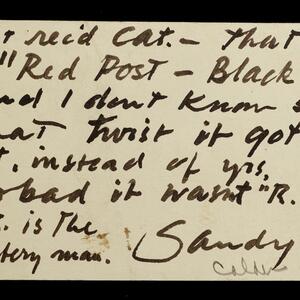 rec'd Cat. – that
"Red Post – Black
I don't know
twist it got
instead of yrs,
bad it wasn't "R.
is the
man.
Sandy
Calder